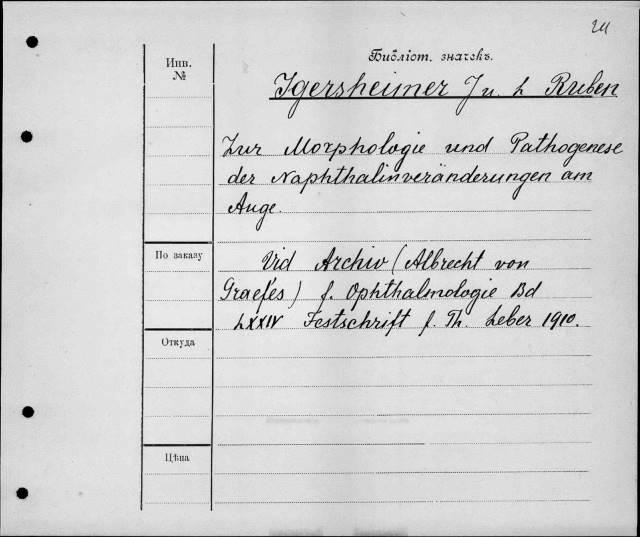 24
Инв.
№
Библіот. значокъ.
Igersheimer J u. L Ruben
Zur Morphologie und Pathogenese
der Naphthalinveränderungen am
Auge.
По заказу
Vid Archiv (Albrecht von
Graefes) f. Ophthalmologie Bd
LXXIV Festschrift f. Th. Leber 1910.
Откуда
Цѣна